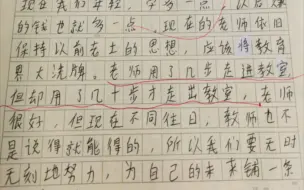 现在我们年轻，学多一点，以后赚
的钱也就多一点，现在的老师依旧
保持以前老土的思想，应该得教育
界大洗牌。老师用了几步走进教室，
但却用了几十步才走出教室，老师
很好，但现在不同往日，教师也不
是说得就能得的，所以我们要无时
无刻地努力，为自己的未来铺一条